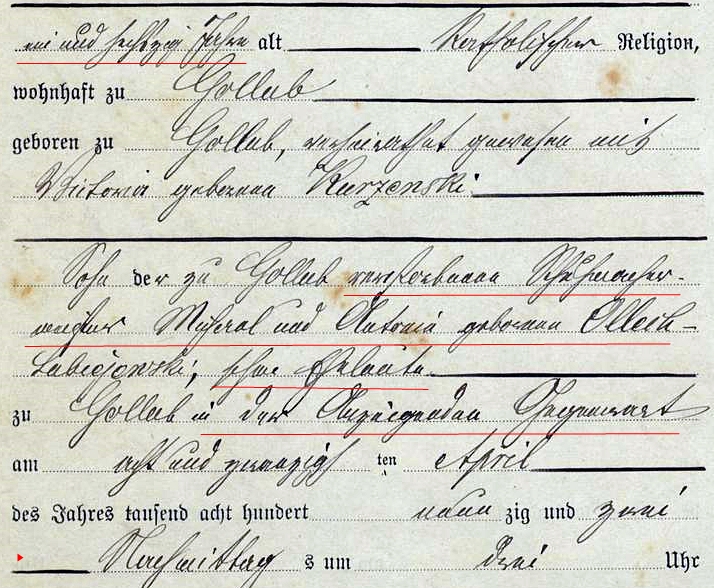 ein und sechzig Jahre alt katholischer Religion,
wohnhaft zu Gollub
geboren zu Gollub, verheirathet gewesen mit
Victoria geborenen
Sohn der zu Gollub verstorbenen Schuhmacher-
meister Michael und Antonia geborenen
Eheleute
zu Gollub in der Anzeigenden Gegenwart
am acht und zwanzigsten April
des Jahres tausend acht hundert neunzig und zwei
Nachmittags um drei Uhr